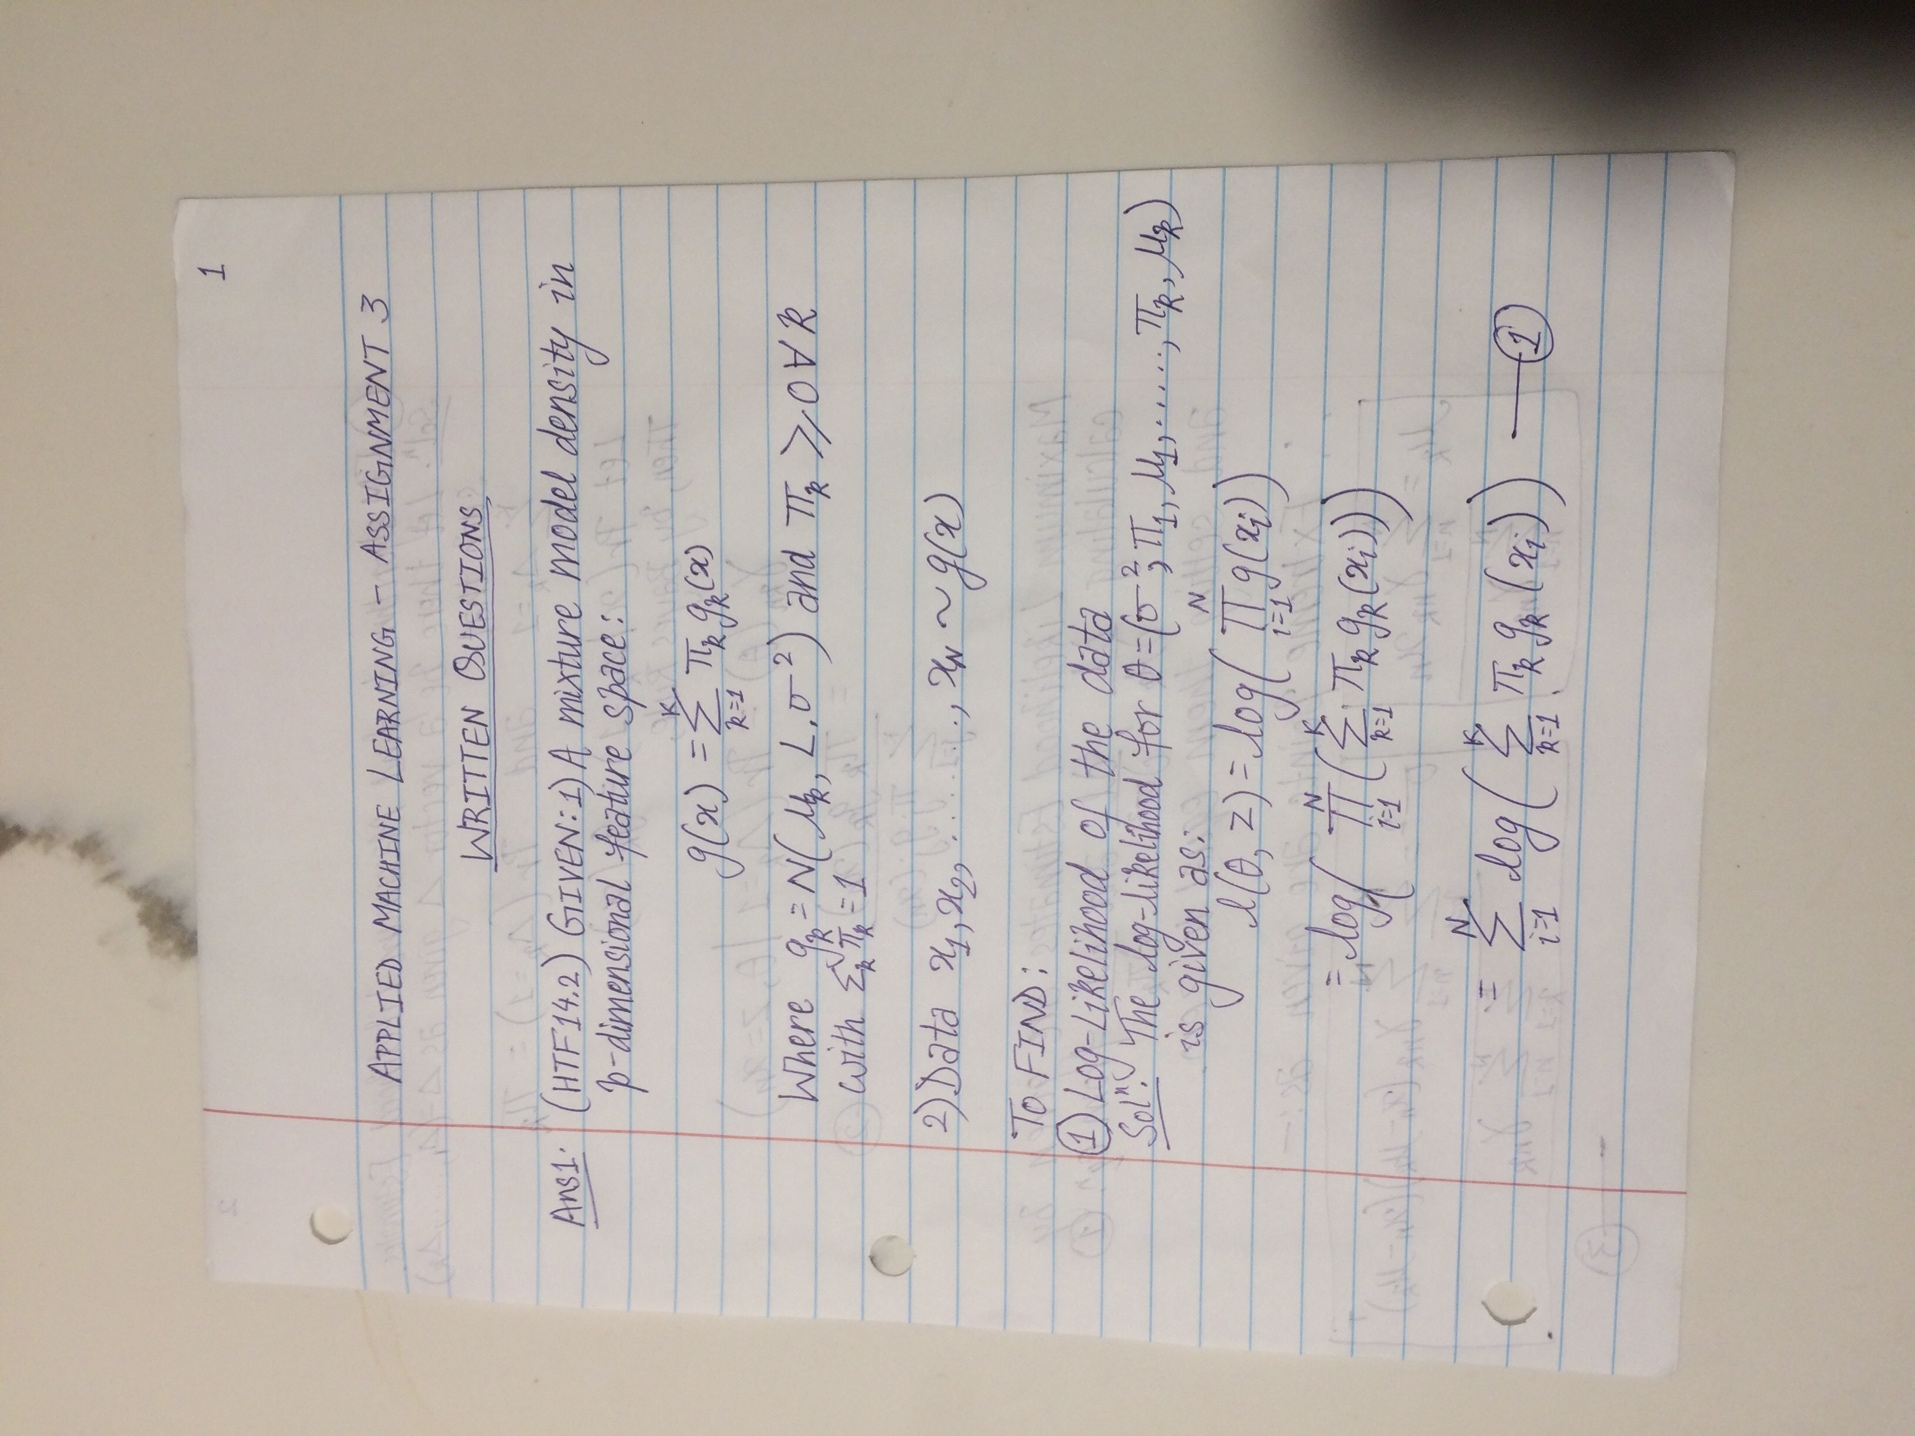 1
APPLIED MACHINE LEARNING - ASSIGNMENT 3
WRITTEN QUESTIONS:
Ans1: (HTF14.2) GIVEN: 1) A mixture model density in
p-dimensional feature space:
g(x) = ∑_{k=1}^{K} π_k g_k(x)
Where g_k = N(μ_k, L.σ²) and π_k ≥ 0 ∀ k
with ∑_k π_k = 1
2) Data x_1, x_2, ......, x_N ~ g(x)
TO FIND:
① Log-Likelihood of the data
Solⁿ: The log-likelihood for θ = (σ², π_1, μ_1, ......, π_k, μ_k)
is given as:
l(θ, Z) = log( ∏_{i=1}^{N} g(x_i))
= log( ∏_{i=1}^{N} ( ∑_{k=1}^{K} π_k g_k(x_i)))
= ∑_{i=1}^{N} log( ∑_{k=1}^{K} π_k g_k(x_i)) — ①